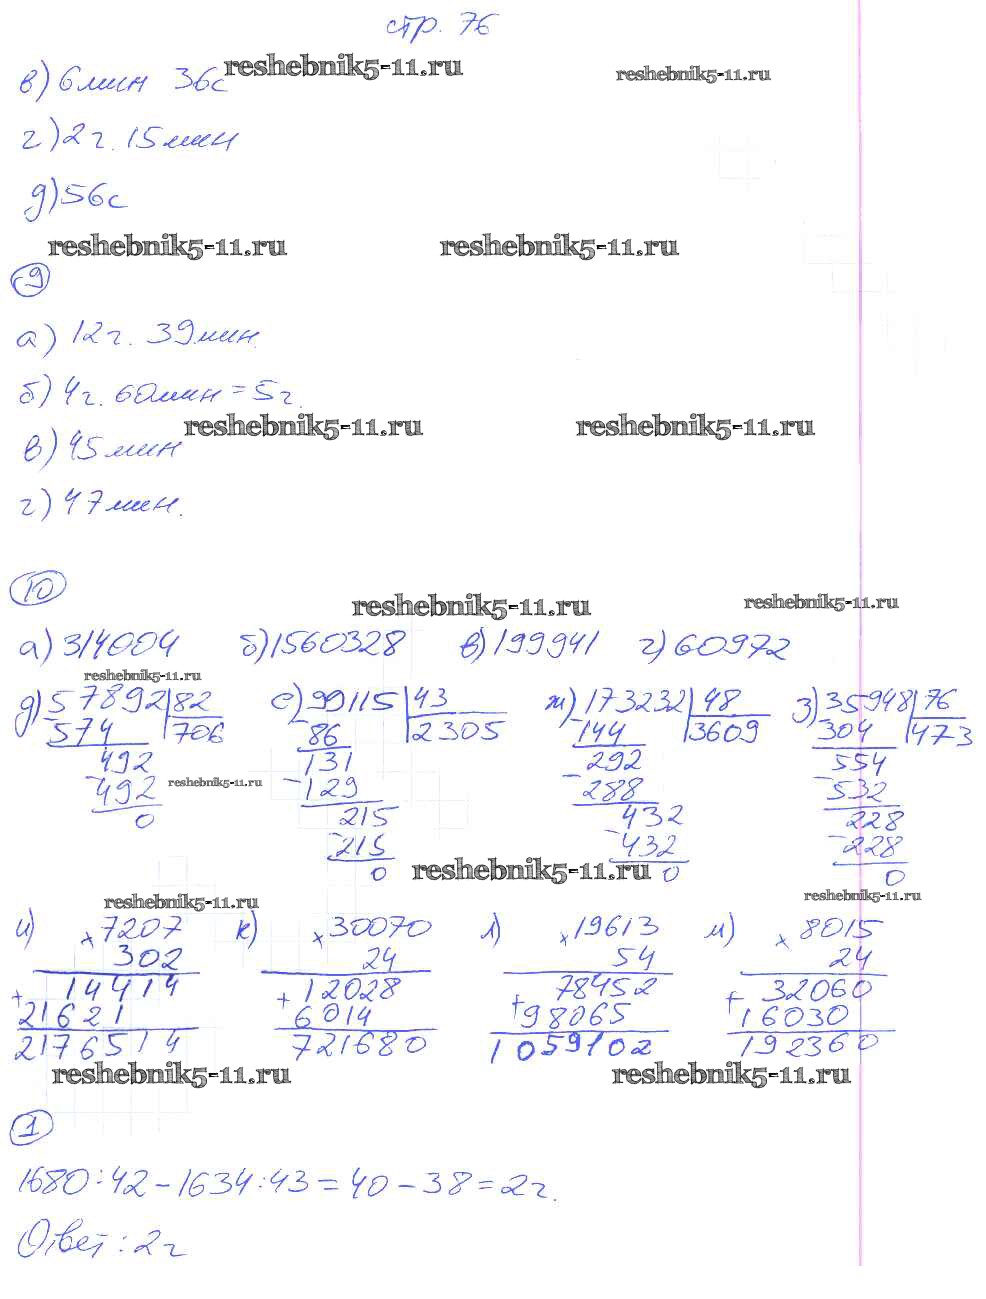 стр. 76
reshebnik5-11.ru reshebnik5-11.ru
в) 6 мин 36с
г) 2 г. 15 мин
д) 56с
reshebnik5-11.ru reshebnik5-11.ru
9
а) 12 г. 39 мин.
б) 4 г. 60 мин = 5 г.
reshebnik5-11.ru reshebnik5-11.ru
в) 45 мин
г) 47 мин.
10
reshebnik5-11.ru reshebnik5-11.ru
а) 314004 б) 1560328 в) 199941 г) 60972
reshebnik5-11.ru
д) 57892 82 е) 99115 43 ж) 173232 48 з) 35948 76
- 574 706 - 86 2305 - 144 3609 - 304 473
492 131 292 554
- 492 reshebnik5-11.ru - 129 - 288 - 532
0 215 432 228
- 215 - 432 - 228
0 reshebnik5-11.ru 0 0
reshebnik5-11.ru reshebnik5-11.ru
и) x 7207 к) x 30070 л) x 19613 м) x 8015
302 24 54 24
+ 14414 + 12028 + 78452 + 32060
21621 6014 98065 16030
2176514 721680 1059102 192360
reshebnik5-11.ru reshebnik5-11.ru
1
1680 : 42 - 1634 : 43 = 40 - 38 = 2 г.
Ответ : 2 г